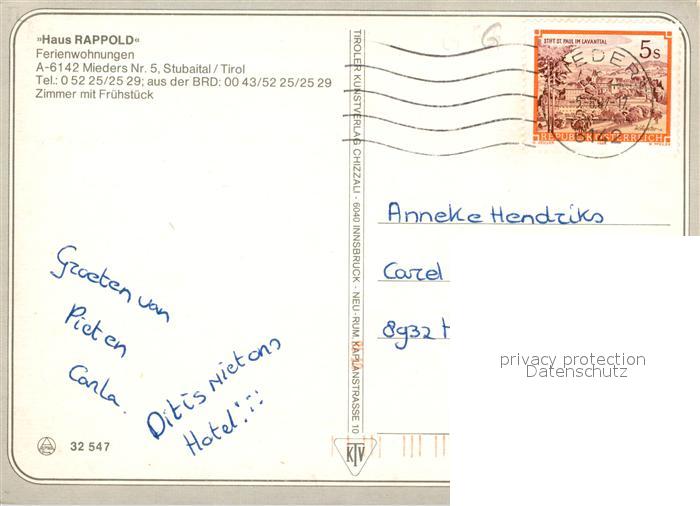 »Haus RAPPOLD«
Ferienwohnungen
A-6142 Mieders Nr. 5, Stubaital / Tirol
Tel.: 0 52 25/25 29; aus der BRD: 00 43/52 25/25 29
Zimmer mit Frühstück
TIROLER KUNSTVERLAG CHIZZALI - 6040 INNSBRUCK - NEU-RUM, KAPLANSTRASSE 10
KTV
6
STIFT ST. PAUL IM LAVANTTAL
5s
REPUBLIK ÖSTERREICH
6142
Anneke Hendriks
Carel
8932
privacy protection
Datenschutz
Groeten van
Piet en
Carla.
Dit is niet ons
Hotel!!!
32 547